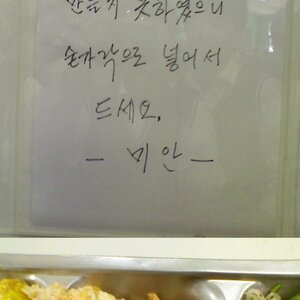 만들지 못하였으니
손가락으로 넣어서
드세요.
- 미안 -